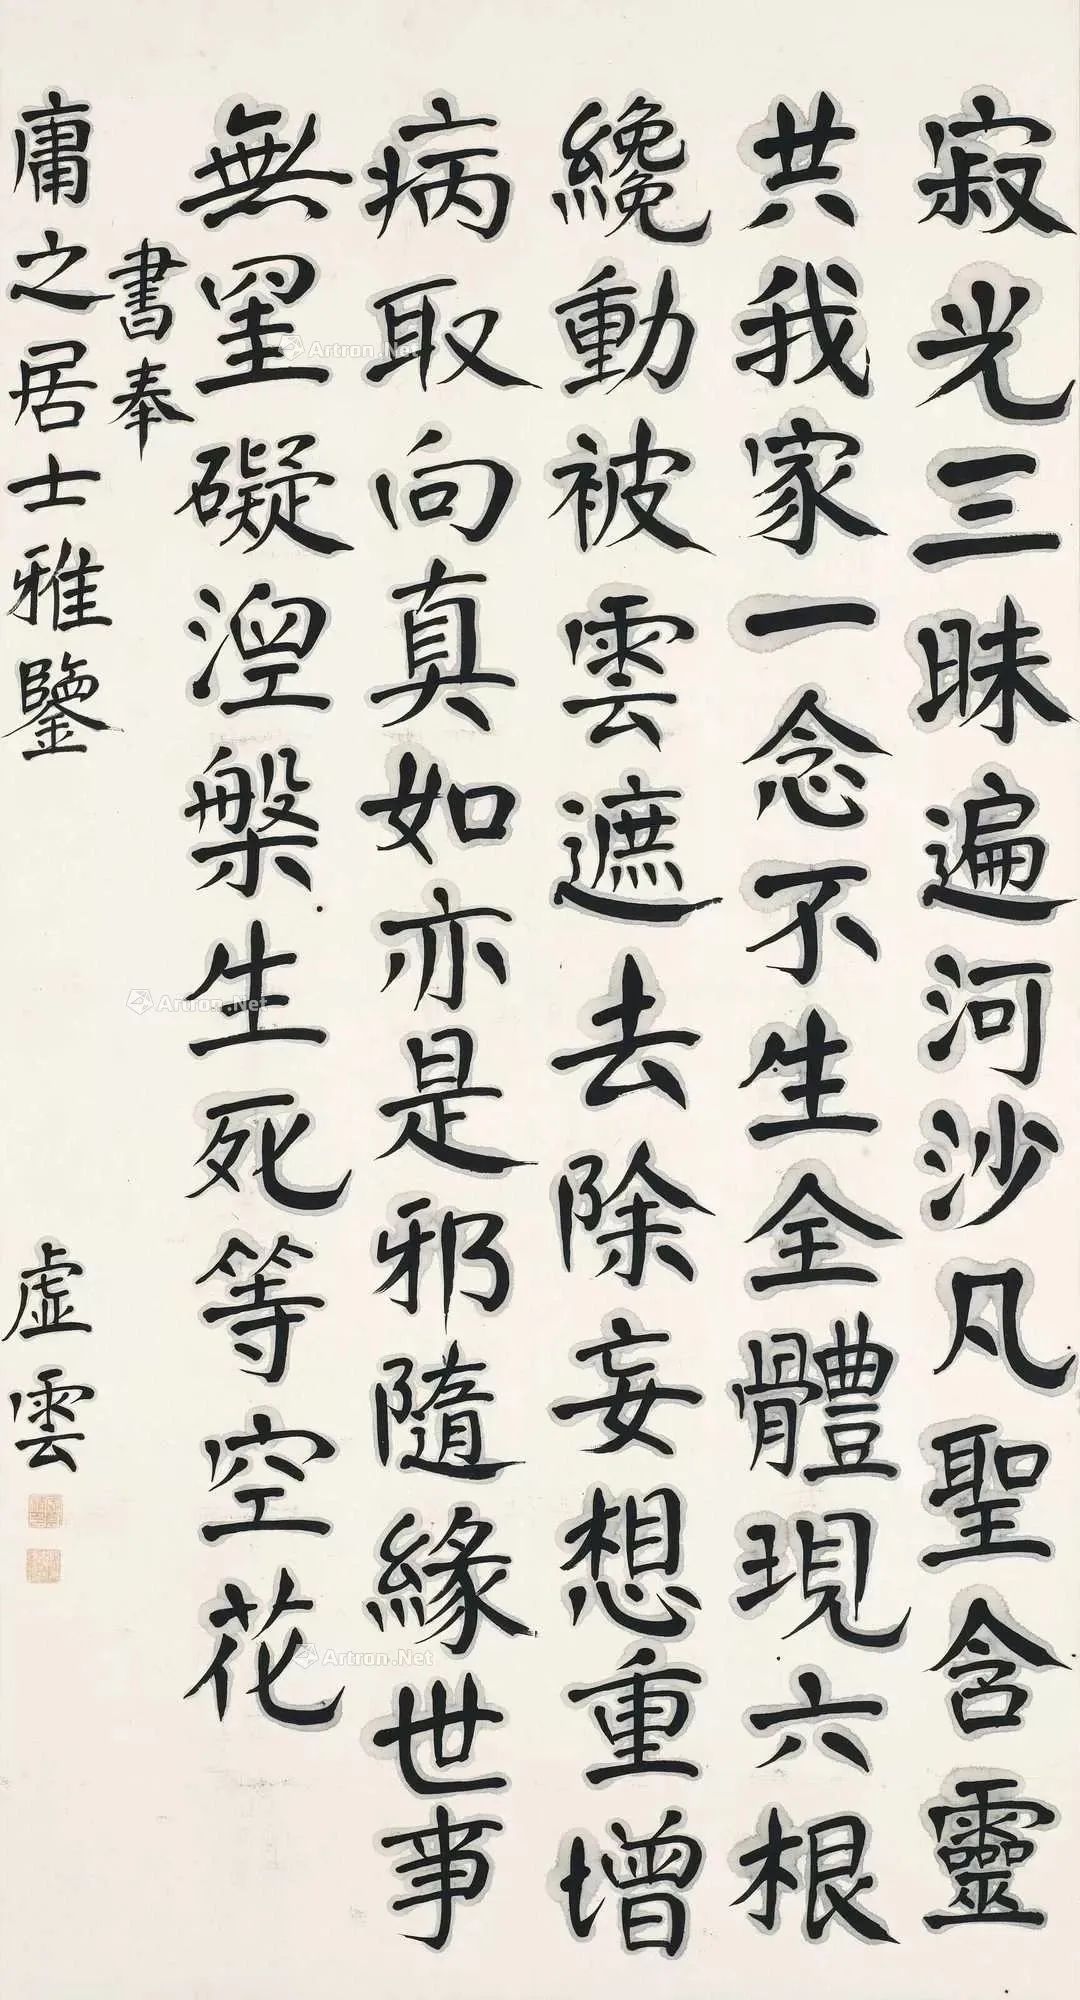 寂光三昧遍河沙凡聖含靈
共我家一念不生全體現六根
纔動被雲遮去除妄想重增
病取向真如亦是邪隨緣世事
無罣礙涅槃生死等空花
書奉
庸之居士雅鑒
虛雲
Artron.Net
Artron.Net
Artron.Net